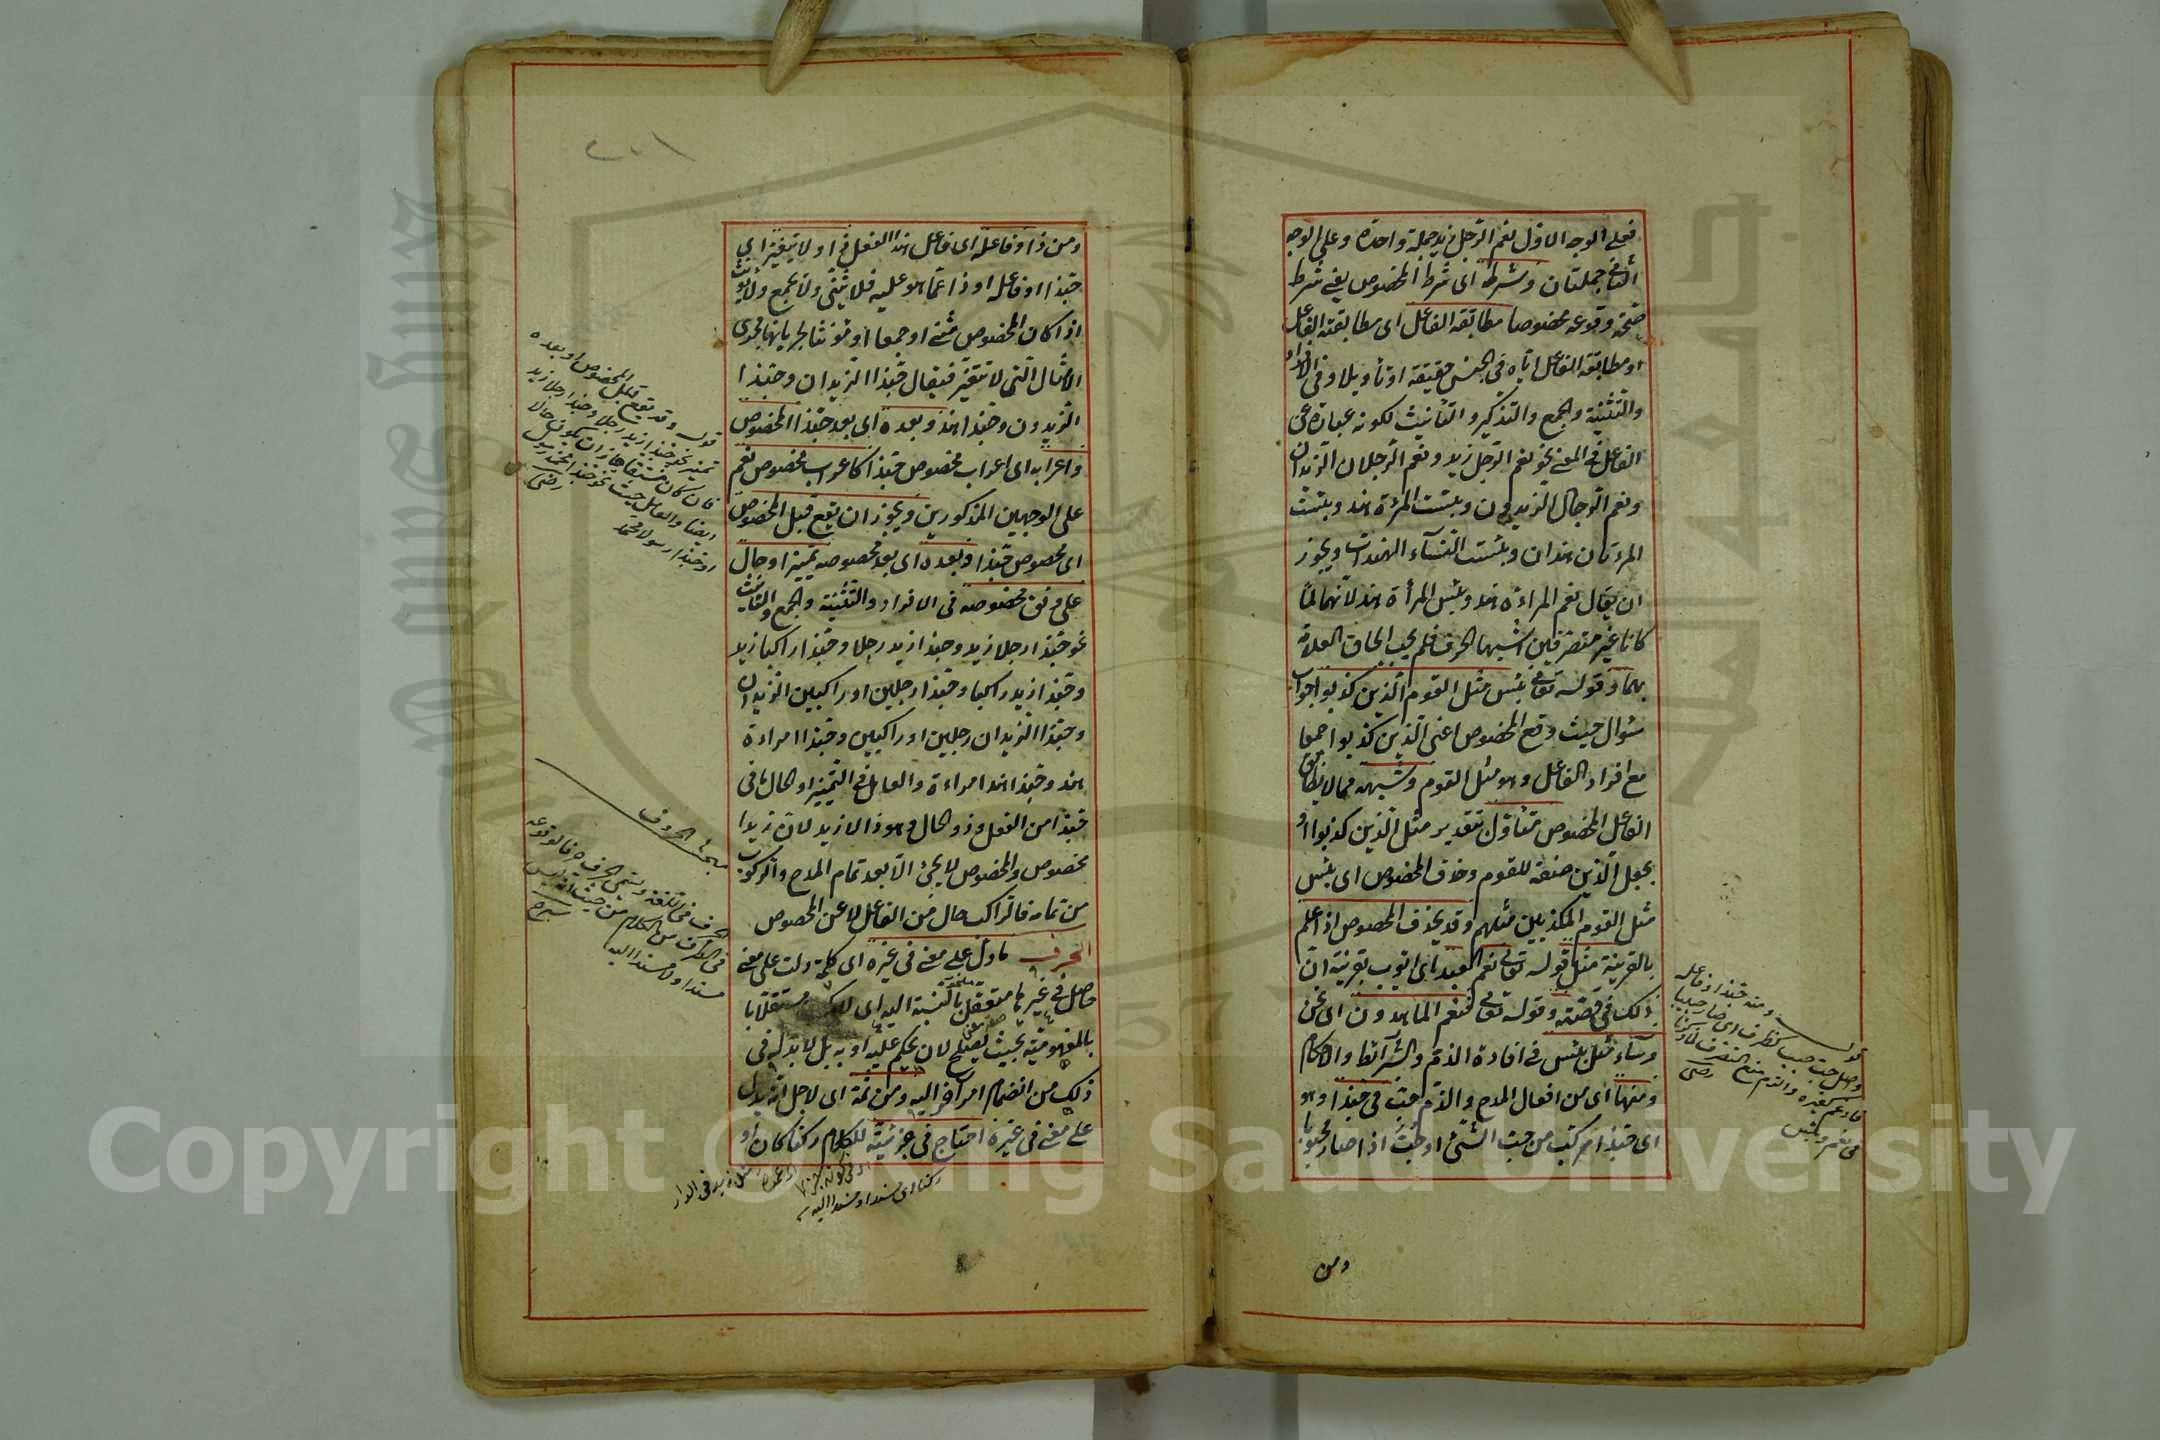 فعلى الوجه الاول نعم الرجل زيد جملة واحدة وعلى الوجه
الثاني جملتان وشرطه اى شرط المخصوص يعني شرط
صحة وقوعه مخصوصا مطابقة الفاعل اى مطابقته الفاعل
او مطابقة الفاعل اياه في الجنس حقيقة او تأويلا وفي الافراد
والتثنية والجمع والتذكير والتأنيث لكونه عبارة عن
الفاعل في المعنى نحو نعم الرجل زيد ونعم الرجلان الزيدان
ونعم الرجال الزيدون وبئست المرأة هند وبئست
المرءتان هندان وبئست النساء الهندات ويجوز
ان يقال نعم المراءة هند وبئس المرأة هند لانهما لما
كانا غير متصرفين اشبها الحرف فلم يجب الحاق العلامة
بهما وقوله تعالى بئس مثل القوم الذين كذبوا جواب
سؤال حيث وقع المخصوص اعني الذين كذبوا جمعا
مع افراد الفاعل وهو مثل القوم وشبهه مما لا يطابق
الفاعل المخصوص متأول بتقدير مثل الذين كذبوا او
بجعل الذين صفة للقوم وحذف المخصوص اى بئس
مثل القوم المكذبين مثلهم وقد يحذف المخصوص اذا علم
بالقرينة مثل قوله تعالى نعم العبد اى ايوب بقرينة ان
ذلك في قصته وقوله تعالى فنعم الماهدون اى نحن
وساء مثل بئس في افادة الذم والشرائط والاحكام
ومنها اى من افعال المدح والذم حب في حبذا وهو
اى حبذا مركب من حب الشئ او حبب اذا صار محبوبا
قوله ومنه حبذا وفاعله
ومن
٢٠١
ومن ذا وفاعله اى فاعل هذا الفعل ذا ولا يتغير اى
حبذا او فاعله او ذا عما هو عليه فلا يثنى ولا يجمع ولا يؤنث
اذا كان المخصوص مثنى او جمعا او مؤنثا لجريانها مجرى
الامثال التي لا تتغير فيقال حبذا الزيدان وحبذا
الزيدون وحبذا هند وبعده اى بعد حبذا المخصوص
واعرابه اى اعراب مخصوص حبذا كاعراب مخصوص نعم
على الوجهين المذكورين ويجوز ان يقع قبل المخصوص
اى مخصوص حبذا وبعده اى بعد مخصوصه تمييز او حال
على وفق مخصوصه في الافراد والتثنية والجمع والتأنيث
نحو حبذا رجلا زيد وحبذا زيد رجلا وحبذا راكبا زيد
وحبذا زيد راكبا وحبذا رجلين او راكبين الزيدان
وحبذا الزيدان رجلين او راكبين وحبذا امراءة
هند وحبذا هند امراءة والعامل في التمييز او الحال ما في
حبذا من الفعل وذو الحال هو ذا لا زيد لان زيدا
مخصوص والمخصوص لا يجئ الا بعد تمام المدح والركوب
من تمامه فالراكب حال من الفاعل لا عن المخصوص
الحرف ما دل على معنى في غيره اى كلمة دلت على معنى
حاصل في غيرها متعقل بالنسبة اليه اى مستقلا
بالمفهومية بحيث يصلح لان يحكم عليه او به بل لا بد له في
ذلك من انضمام امر آخر اليه ومن ثمة اى لاجل انه يدل
على معنى في غيره احتاج في جزئيته للكلام ركنا كان او
قوله وقد يقع قبل المخصوص او بعده
تمييز نحو حبذا زيد رجلا وحبذا رجلا زيد
فان كان مشتقا جاز ان يكون حالا
رضى
مبحث الحروف
ركنا اى مسندا او مسندا اليه